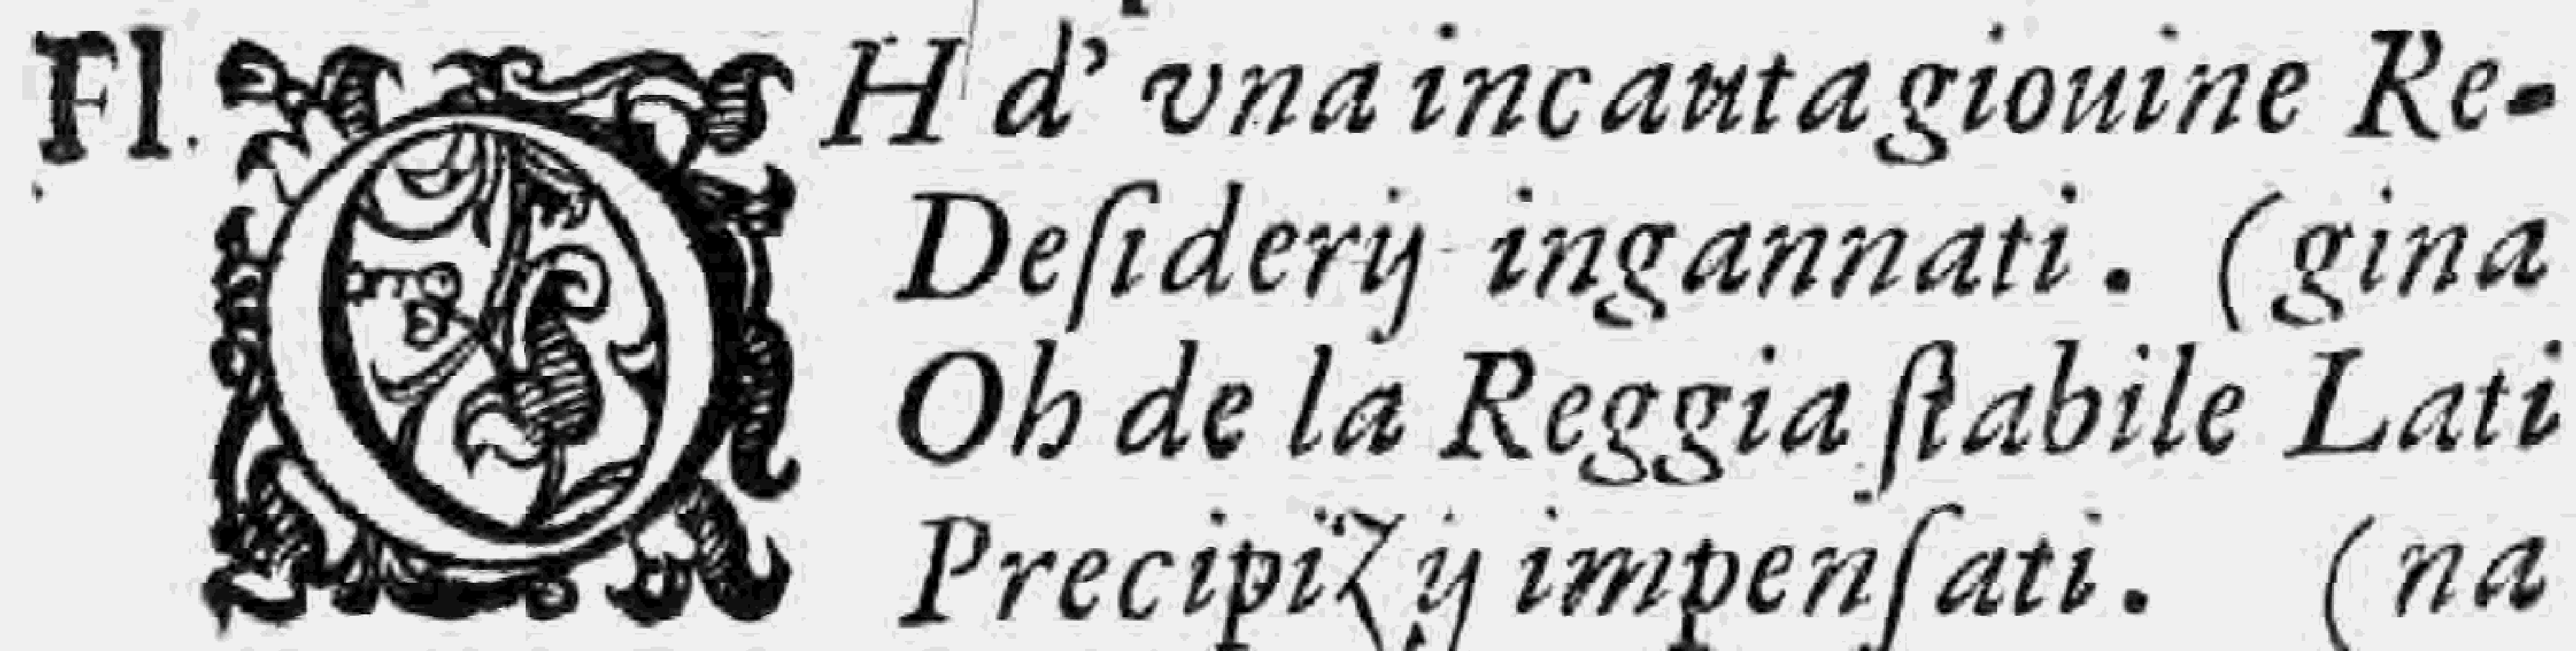 Fl. OH d' vna incauta giouine Re-
Deſiderij ingannati. (gina
Oh de la Reggia ſtabile Lati
Precipizij impenſati. (na